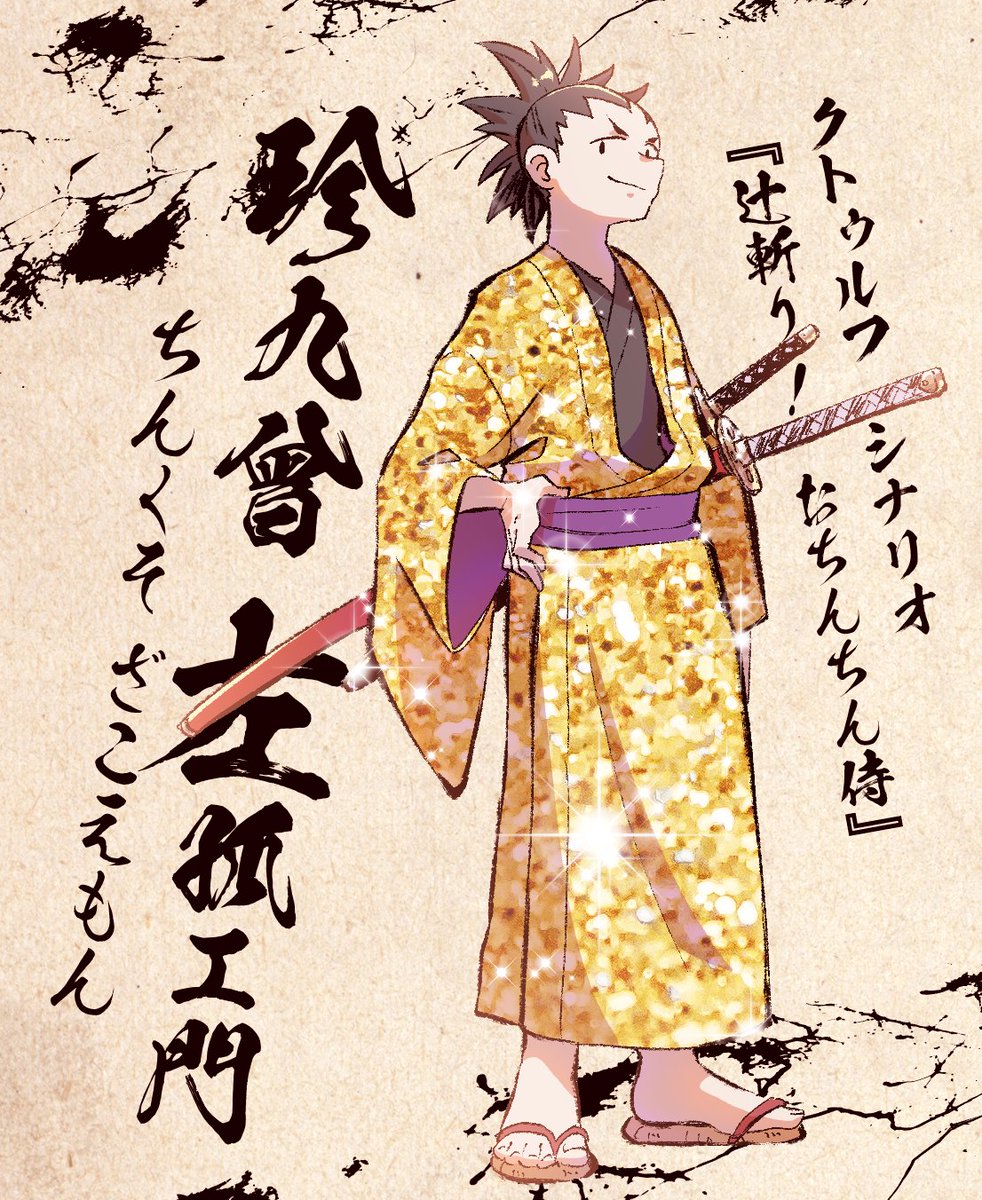 クトゥルフ シナリオ
『辻斬り! おちんちん侍』
玲九曾 左孤エ門
ちんくそ ざこえもん